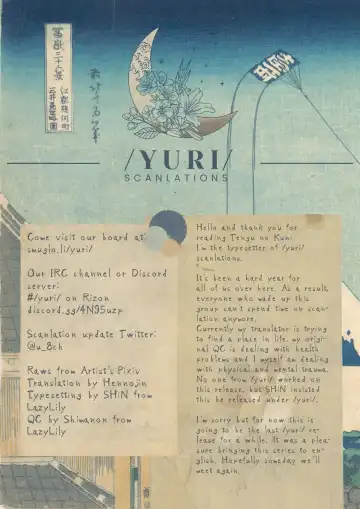 冨嶽三十六景
江都駿河町
三井見世略圖
/YURI/
SCANLATIONS
Come visit our board at:
smuglo.li/yuri/
Our IRC channel or Discord
server:
#/yuri/ on Rizon
discord.gg/4N95uzp
Scanlation update Twitter:
@u_8ch
Raws from Artist's Pixiv
Translation by Hennojin
Typesetting by SHiN from
LazyLily
QC by Shimanon from
LazyLily
Hello and thank you for
reading Tengu no Kuni
I'm the typesetter of /yuri/
scanlations.
It's been a hard year for
all of us over here. As a result,
everyone who made up this
group can't spend time on scan-
lation anymore.
Currently my translator is trying
to find a place in life, my origi-
nal QC is dealing with health
problems and I myself am dealing
with physical and mental trauma.
No one from /yuri/ worked on
this release, but SHiN insisted
this be released under /yuri/.
I'm sorry but for now this is
going to be the last /yuri/ re-
lease for a while. It was a plea-
sure bringing this series to en-
glish. Hopefully someday we'll
meet again.